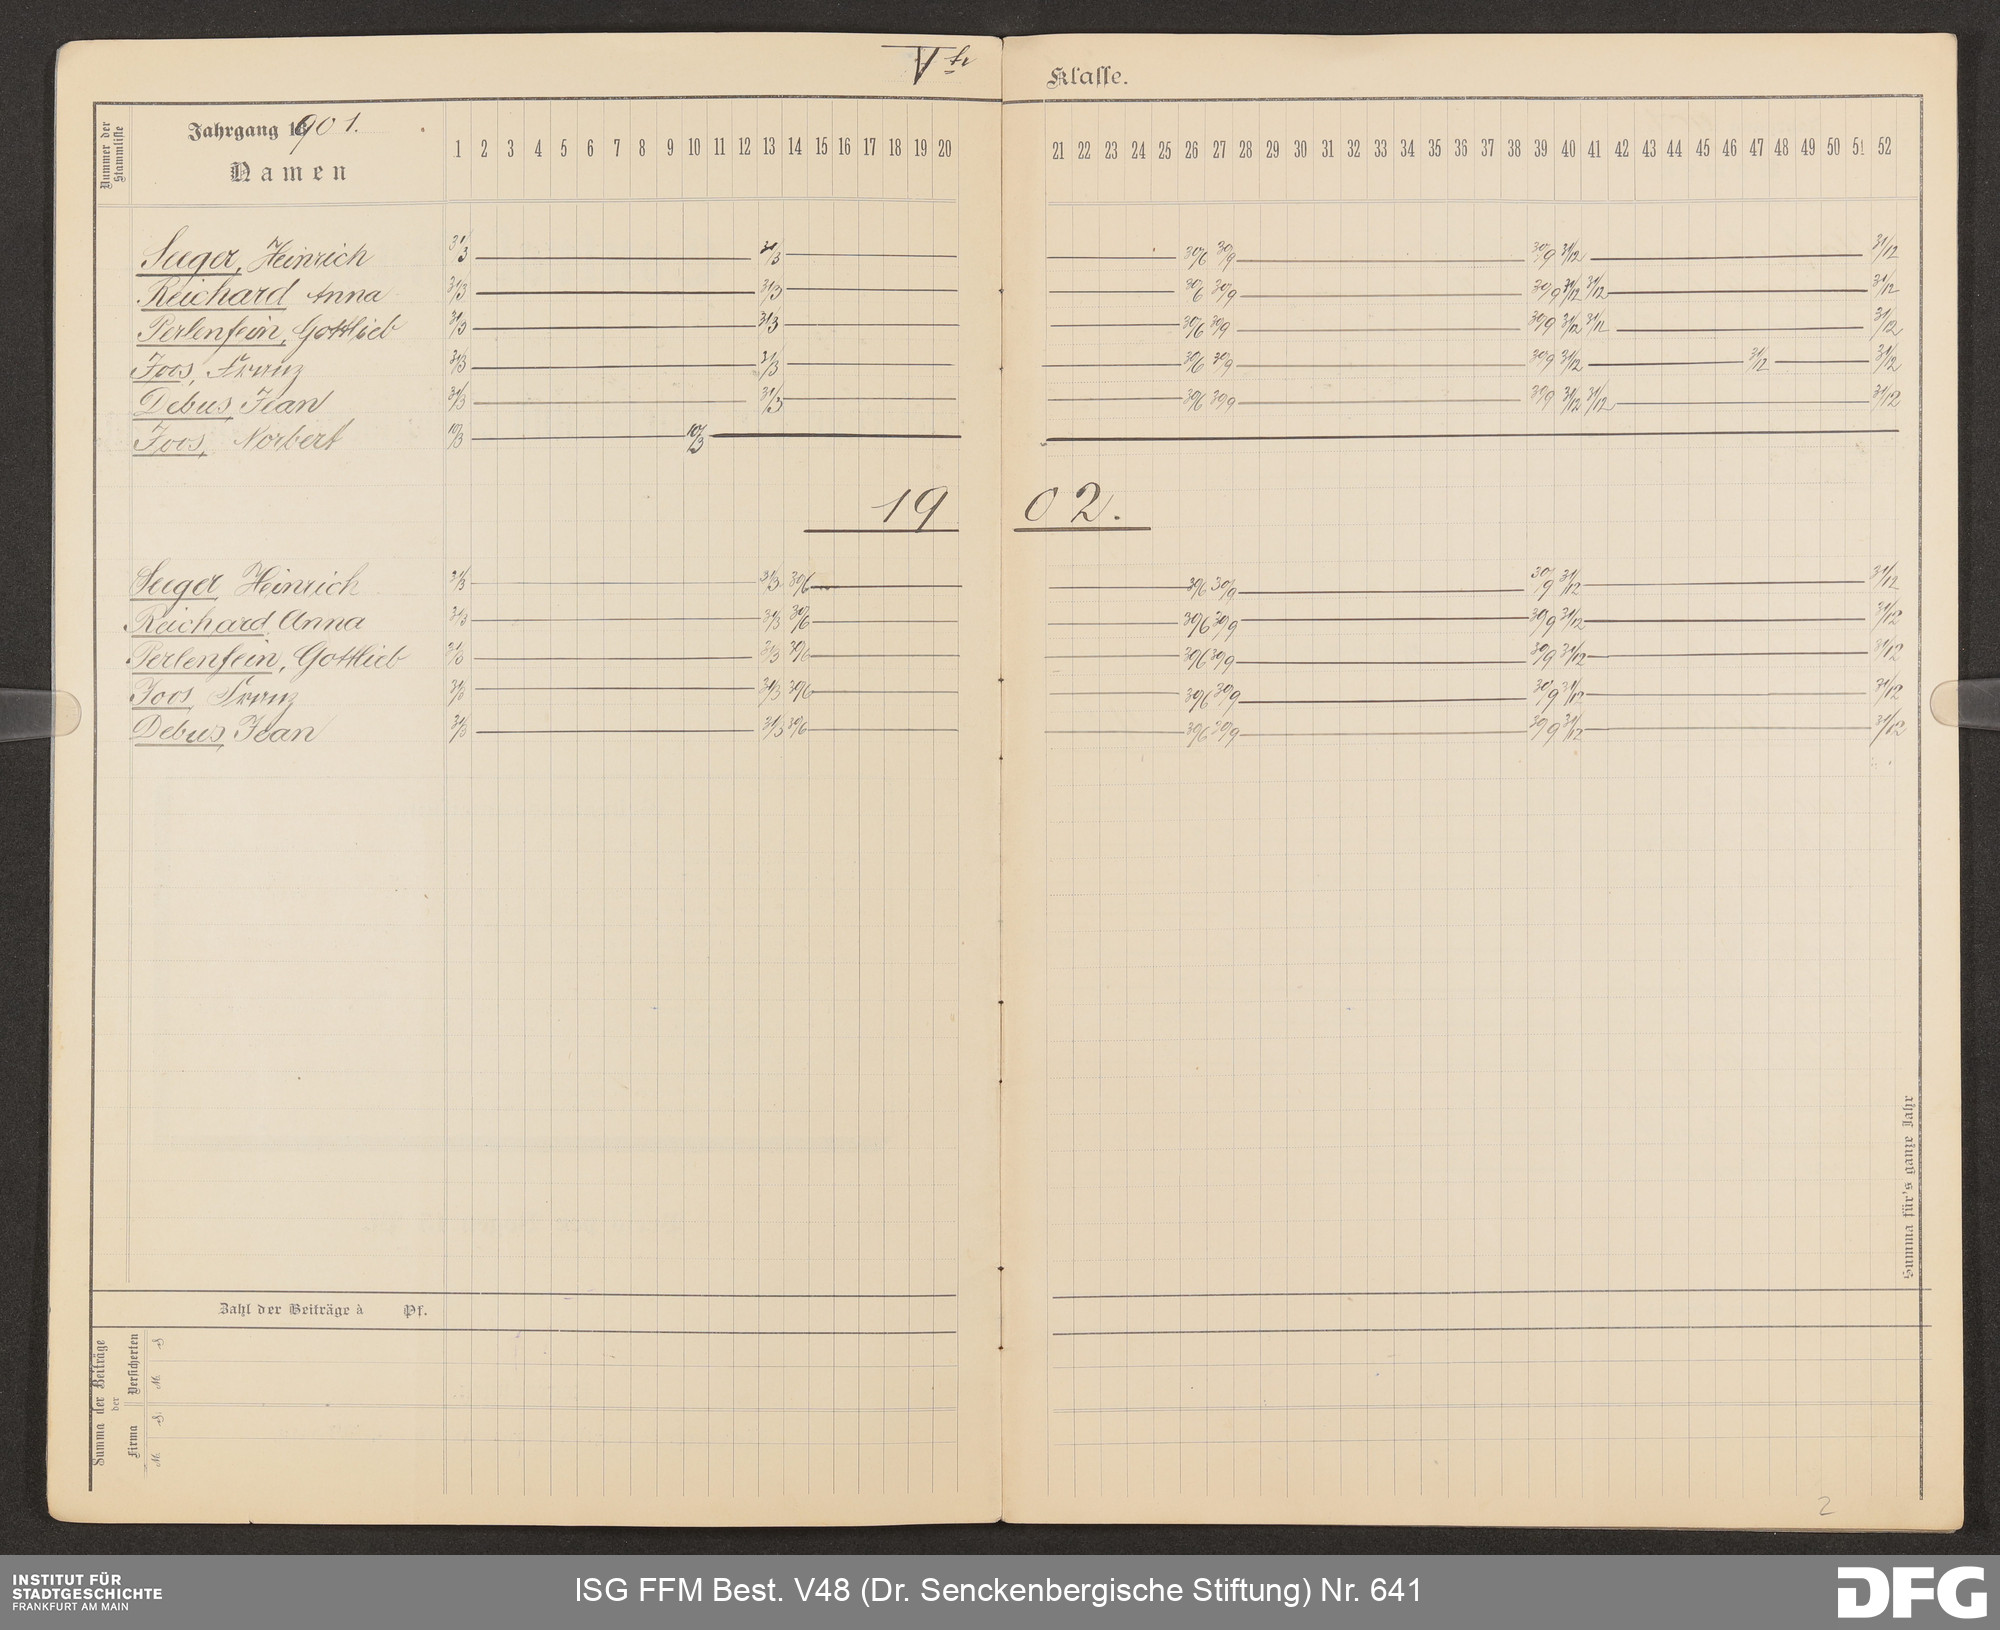 Vte Klasse.
Nummer der Stammliste
Jahrgang 1901.
Namen
1 2 3 4 5 6 7 8 9 10 11 12 13 14 15 16 17 18 19 20 21 22 23 24 25 26 27 28 29 30 31 32 33 34 35 36 37 38 39 40 41 42 43 44 45 46 47 48 49 50 51 52
Seeger, Heinrich 31/3 31/3 30/6 30/9 30/9 31/12 31/12
Reichard Anna 31/3 31/3 30/6 30/9 30/9 31/12 31/12 31/12
Perlenfein, Gottlieb 31/3 31/3 30/6 30/9 30/9 31/12 31/12 31/12
Joos, Franz 31/3 31/3 30/6 30/9 30/9 31/12 31/12 31/12
Debus, Jean 31/3 31/3 30/6 30/9 30/9 31/12 31/12 31/12
Joos, Norbert 10/3 10/3
1902.
Seeger, Heinrich 31/3 31/3 30/6 30/6 30/9 30/9 31/12 31/12
Reichard Anna 31/3 31/3 30/6 30/6 30/9 30/9 31/12 31/12
Perlenfein, Gottlieb 31/3 31/3 30/6 30/6 30/9 30/9 31/12 31/12
Joos, Franz 31/3 31/3 30/6 30/6 30/9 30/9 31/12 31/12
Debus, Jean 31/3 31/3 30/6 30/6 30/9 30/9 31/12 31/12
Summa für's ganze Jahr
Zahl der Beiträge à Pf.
Summa der Beiträge
der
Versicherten
M. S
Firma
M. S
2
INSTITUT FÜR
STADTGESCHICHTE
FRANKFURT AM MAIN
ISG FFM Best. V48 (Dr. Senckenbergische Stiftung) Nr. 641
DFG